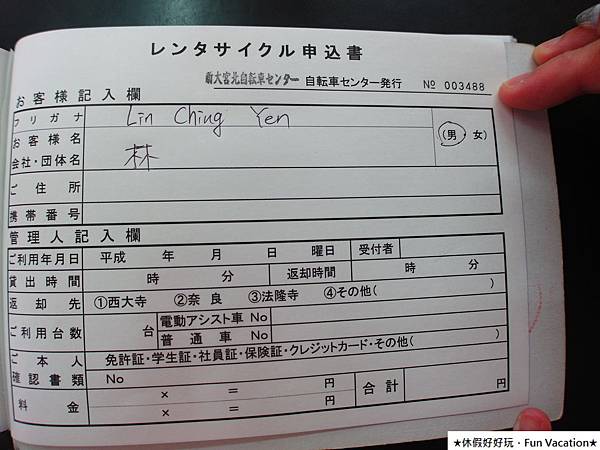 レンタサイクル申込書
自転車センター発行 № 003488
お客様記入欄
フリガナ Lin Ching Yen
お客様名 (男 女)
会社・団体名 林
ご住所
携帯番号
管理人記入欄
ご利用年月日 平成 年 月 日 曜日 受付者
貸出時間 時 分 返却時間 時 分
返却先 ①西大寺 ②奈良 ③法隆寺 ④その他( )
ご利用台数 台 電動アシスト車 No
普通車 No
ご本人 免許証・学生証・社員証・保険証・クレジットカード・その他( )
確認書類 No
料金 × = 円 合計 円
× = 円
★休假好好玩・Fun Vacation★